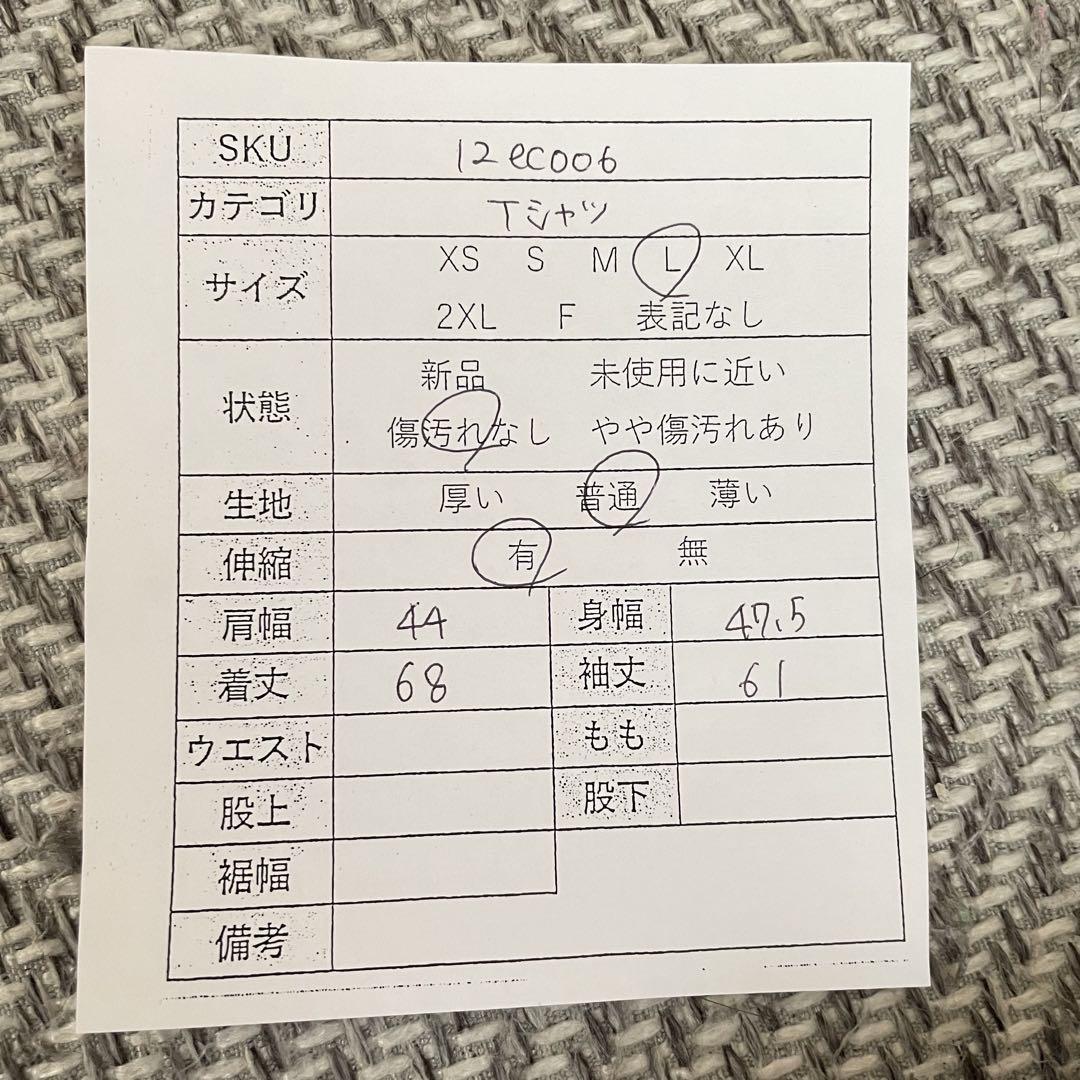 SKU 12ec006
カテゴリ Tシャツ
サイズ XS S M L XL
2XL F 表記なし
状態 新品 未使用に近い
傷汚れなし やや傷汚れあり
生地 厚い 普通 薄い
伸縮 有 無
肩幅 44 身幅 47.5
着丈 68 袖丈 61
ウエスト もも
股上 股下
裾幅
備考